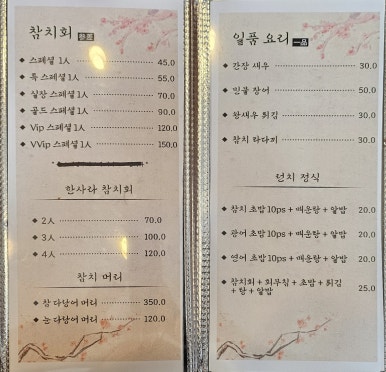 참치회
스페셜 1人 45.0
특 스페셜 1人 55.0
실장 스페셜 1人 70.0
골드 스페셜 1人 90.0
Vip 스페셜 1人 120.0
VVip 스페셜 1人 150.0
한사라 참치회
2人 70.0
3人 100.0
4人 120.0
참치 머리
참 다랑어 머리 350.0
눈 다랑어 머리 120.0
일품 요리 一品
간장 새우 30.0
민물 장어 50.0
왕새우 튀김 30.0
참치 타다끼 30.0
런치 정식
참치 초밥 10ps + 매운탕 + 알밥 20.0
광어 초밥 10ps + 매운탕 + 알밥 20.0
연어 초밥 10ps + 매운탕 + 알밥 20.0
참치회 + 회무침 + 초밥 + 튀김
+ 탕 + 알밥 25.0